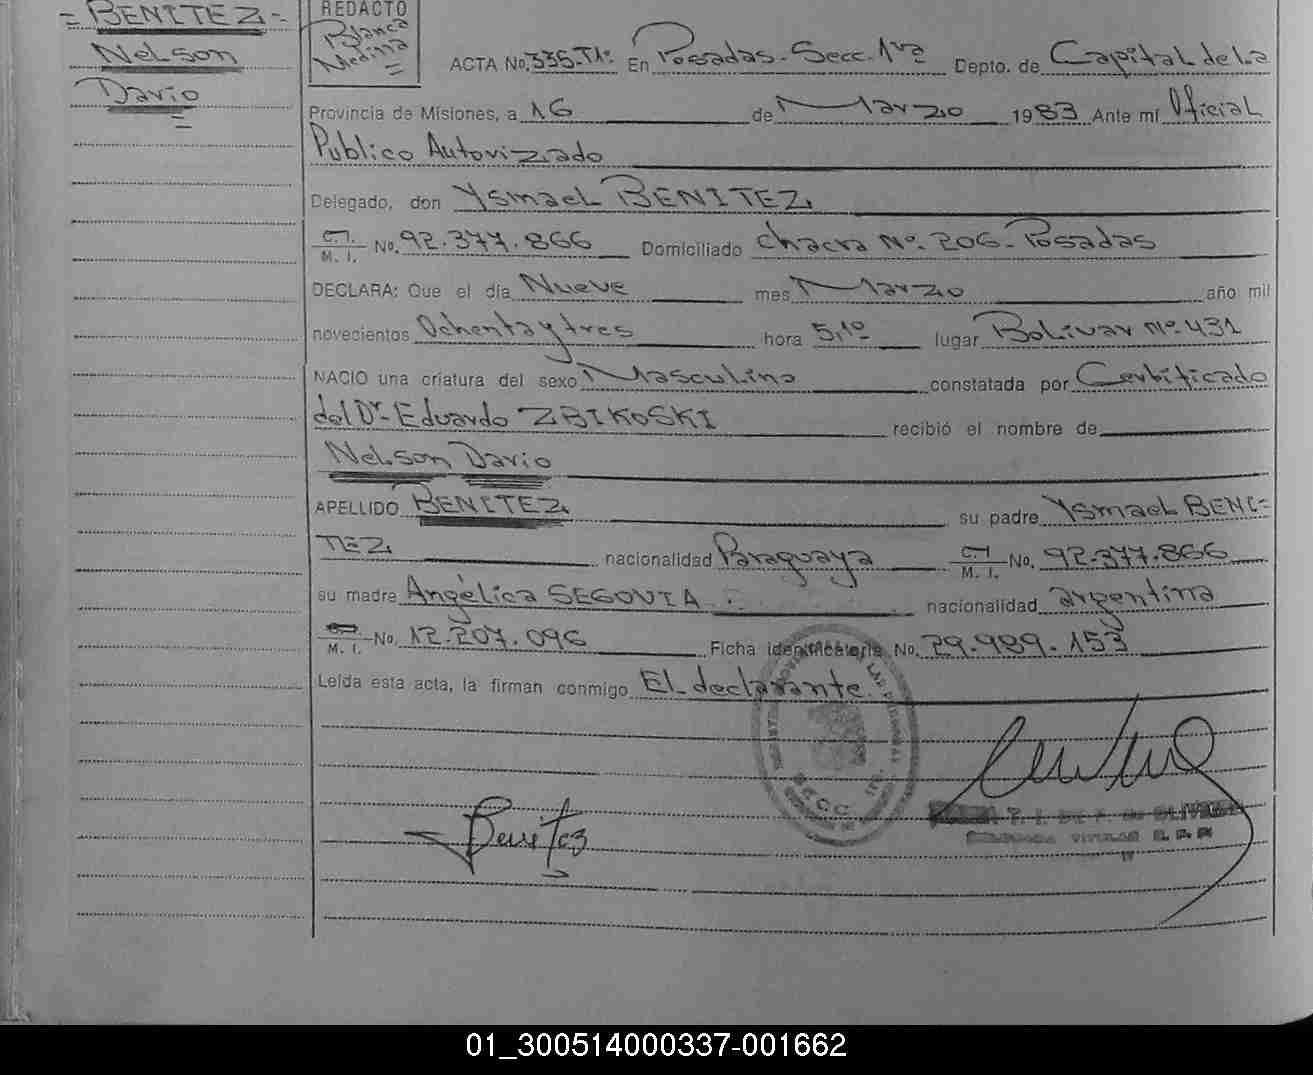 = BENITEZ =
Nelson
Dario
=
REDACTO
Blanca
Medina
=
ACTA No. 335-T1º En Posadas - Secc. 1ra Depto. de Capital de La
Provincia de Misiones, a 16 de Marzo 1983 Ante mí Oficial
Publico Autorizado
Delegado, don Ysmael BENITEZ
C.I. M. I. No. 92.377.866 Domiciliado chacra Nº. 206 - Posadas
DECLARA: Que el día Nueve mes Marzo año mil
novecientos Ochenta y tres hora 5,10 lugar Bolivar Nº 431
NACIO una criatura del sexo Masculino constatada por Certificado
del Dr. Eduardo ZBIKOSKI recibió el nombre de
Nelson Dario
APELLIDO BENITEZ su padre Ysmael BENI=
TEZ nacionalidad Paraguaya C.I M. I. No. 92.377.866
su madre Angélica SEGOVIA nacionalidad argentina
M. I. No. 12.207.096 Ficha identificatoria No. 29.989.153
Leída esta acta, la firman conmigo El declarante.
SECC. 1ra
Benitez
01_300514000337-001662